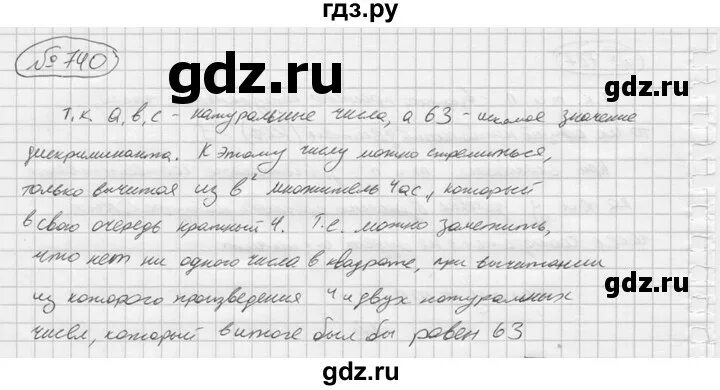 гдз.ру
gdz.ru
№ 740
gdz.ru
т.к. а, в, с - натуральные числа, а 63 - искомое значение
дискриминанта. К этому числу можно стремиться,
только вычитая из в² множитель 4ас, который
в свою очередь кратный 4. Т.е. можно заметить,
что нет ни одного числа в квадрате, при вычитании
gdz.ru
из которого произведения 4 и двух натуральных
чисел, который в итоге был бы равен 63
gdz.ru
gdz.ru